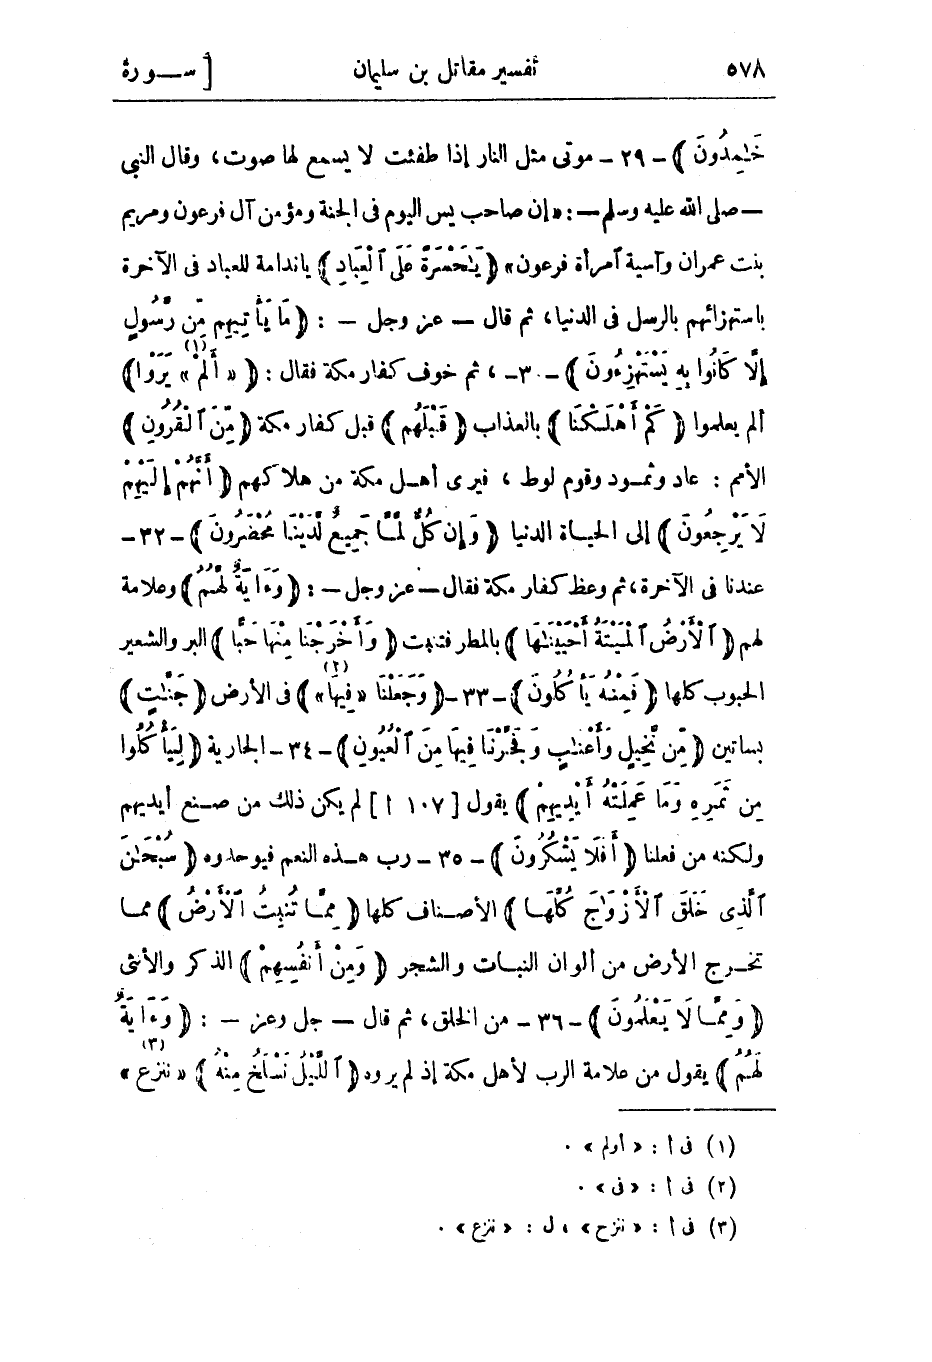 ٥٧٨ تفسير مقاتل بن سليمان [ ســورة
خَٰمِدُونَ ﴾ - ٢٩ - موتى مثل النار إذا طفئت لا يسمع لها صوت، وقال النبى
— صلى الله عليه وسلم — : «إن صاحب يس اليوم فى الجنة ومؤمن آل فرعون ومريم
بنت عمران وآسية آمرأة فرعون» ﴿ يَٰحَسْرَةً عَلَى ٱلْعِبَادِ ﴾ ياندامة للعباد فى الآخرة
باستهزائهم بالرسل فى الدنيا، ثم قال — عز وجل — : ﴿ مَا يَأْتِيهِم مِّن رَّسُولٍ
إِلَّا كَانُوا بِهِ يَسْتَهْزِءُونَ ﴾ - ٣٠ - ، ثم خوف كفار مكة فقال : ﴿ « أَلَمْ » (١) يَرَوْا ﴾
ألم يعلموا ﴿ كَمْ أَهْلَكْنَا ﴾ بالعذاب ﴿ قَبْلَهُم ﴾ قبل كفار مكة ﴿ مِّنَ ٱلْقُرُونِ ﴾
الأمم : عاد وثمـود وقوم لوط ، فيرى أهـل مكة من هلاكهم ﴿ أَنَّهُمْ إِلَيْهِمْ
لَا يَرْجِعُونَ ﴾ إلى الحيـاة الدنيا ﴿ وَإِن كُلٌّ لَّمَّا جَمِيعٌ لَّدَيْنَا مُحْضَرُونَ ﴾ - ٣٢ -
عندنا فى الآخرة، ثم وعظ كفار مكة فقال — عز وجل — : ﴿ وَءَايَةٌ لَّهُمُ ﴾ وعلامة
لهم ﴿ ٱلْأَرْضُ ٱلْمَيْتَةُ أَحْيَيْنَٰهَا ﴾ بالمطر فتنبت ﴿ وَأَخْرَجْنَا مِنْهَا حَبًّا ﴾ البر والشعير
الحبوب كلها ﴿ فَمِنْهُ يَأْكُلُونَ ﴾ - ٣٣ - ﴿ وَجَعَلْنَا «فِيهَا» (٢) ﴾ فى الأرض ﴿ جَنَّٰتٍ ﴾
بساتين ﴿ مِّن نَّخِيلٍ وَأَعْنَٰبٍ وَفَجَّرْنَا فِيهَا مِنَ ٱلْعُيُونِ ﴾ - ٣٤ - الجارية ﴿ لِيَأْكُلُوا
مِن ثَمَرِهِ وَمَا عَمِلَتْهُ أَيْدِيهِمْ ﴾ يقول [ ١٠٧ أ ] لم يكن ذلك من صـنع أيديهم
ولكنه من فعلنا ﴿ أَفَلَا يَشْكُرُونَ ﴾ - ٣٥ - رب هـذه النعم فيوحدوه ﴿ سُبْحَٰنَ
ٱلَّذِى خَلَقَ ٱلْأَزْوَٰجَ كُلَّهَـا ﴾ الأصـناف كلها ﴿ مِمَّـا تُنۢبِتُ ٱلْأَرْضُ ﴾ ممـا
تخـرج الأرض من ألوان النبـات والشجر ﴿ وَمِنْ أَنفُسِهِمْ ﴾ الذكر والأنثى
﴿ وَمِمَّـا لَا يَعْلَمُونَ ﴾ - ٣٦ - من الخلق، ثم قال — جل وعز — : ﴿ وَءَايَةٌ
لَّهُمُ ﴾ يقول من علامة الرب لأهل مكة إذ لم يروه ﴿ ٱلَّيْلُ نَسْلَخُ مِنْهُ ﴾ « ننزع » (٣)
(١) فى أ : « أولم » .
(٢) فى أ : «فى» .
(٣) فى أ : « ننزح » ، ل : « ننزع » .